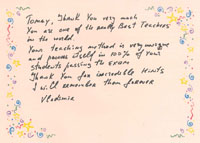 Tomay, Thank You very much
You are one of the really Best Teachers
in the world.
Your teaching method is very unique
and proves itself in 100% of your
students passing the exam
Thank You for incredible Hints
I will remember them forever
Vladimir